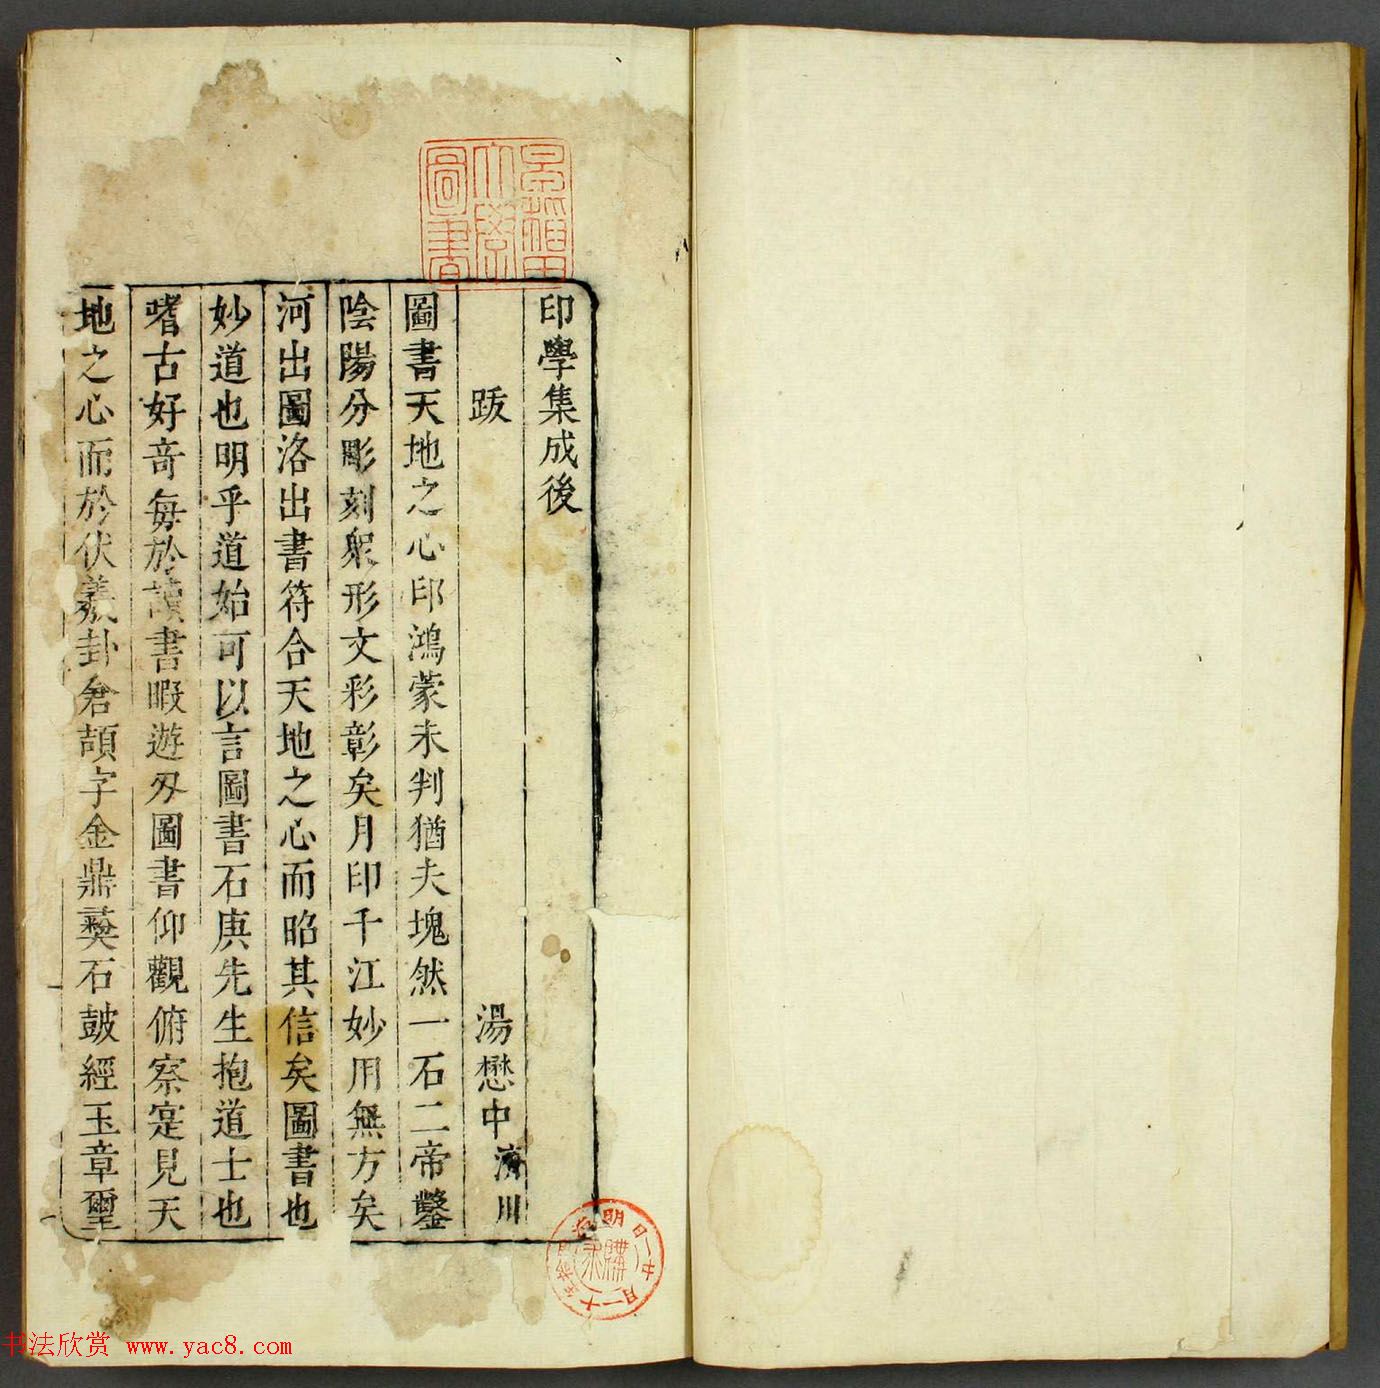 印學集成後
跋
湯懋中濟川
圖書天地之心印鴻蒙未判猶夫塊然一石二帝鑿
陰陽分彫刻眾形文彩彰矣月印千江妙用無方矣
河出圖洛出書符合天地之心而昭其信矣圖書也
妙道也明乎道始可以言圖書石庚先生抱道士也
嗜古好奇每於讀書暇遊刃圖書仰觀俯察寔見天
地之心而於伏羲卦倉頡字金鼎彝石鼓經玉章璽
早稻田
大學
圖書
明治
日一廿月一十
購求
书法欣赏 www.yac8.com